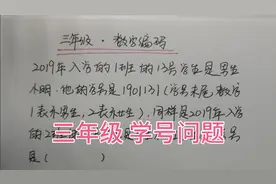 三年级·数字编码
2019年入学的1班的13号学生是男生
小明,他的学号是1901131(学号末尾数字
1表示男生,2表示女生),同样是2019年入学
的2
三年级 学号问题
号
是( )